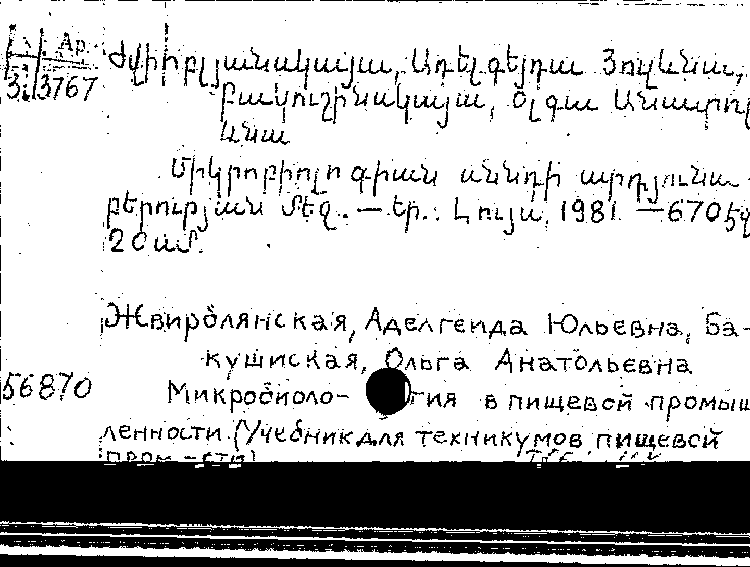 Ар.
3767
Ժվիրբլյանսկայա, Ադելգեյդա Յուլևնա,
Բակուշինսկայա, Օլգա Անատոլ
ևնա
Միկրոբիոլոգիան սննդի արդյունա-
բերության մեջ. — Եր.: Լույս, 1981 — 670 էջ
20 սմ.
Жвирблянская, Аделгеида Юльевна, Ба-
кушиская, Ольга Анатольевна
56870
Микробиоло- гия в пищевой промыш
ленности (Учебник для техникумов пищевой
пром-сти)